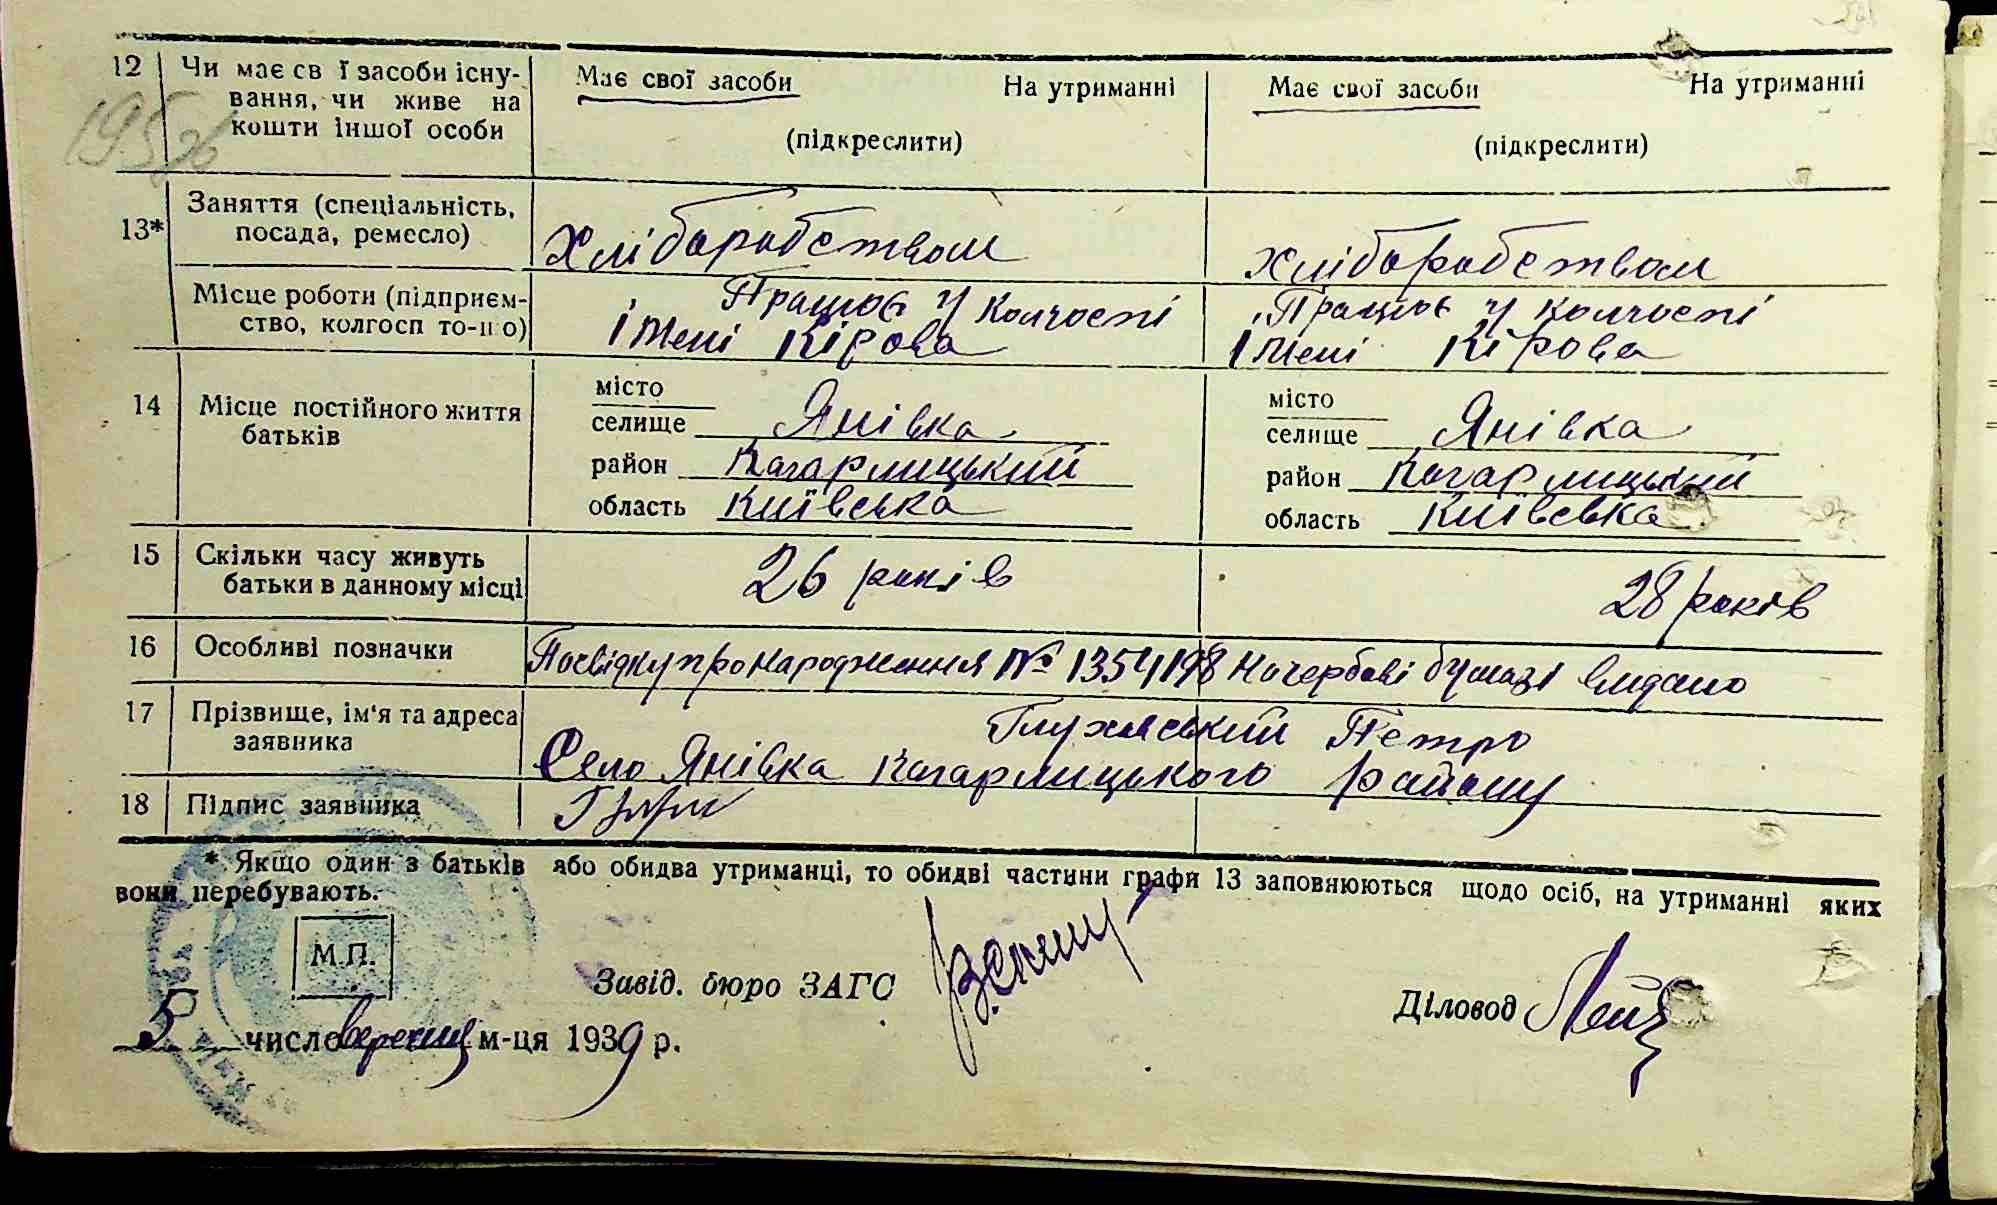 12 Чи має св ї засоби існу-
вання, чи живе на
кошти іншої особи
Має свої засоби На утриманні
(підкреслити)
Має свої засоби На утриманні
(підкреслити)
13* Заняття (спеціальність,
посада, ремесло)
Хліборобством
хліборобством
Місце роботи (підприєм-
ство, колгосп то-що)
Працює у колгоспі
імені Кірова
Працює у колгоспі
імені Кірова
14 Місце постійного життя
батьків
місто
селище Янівка
район Кагарлицький
область Київська
місто
селище Янівка
район Кагарлицький
область Київська
15 Скільки часу живуть
батьки в данному місці
26 років
28 років
16 Особливі позначки
Посвідку про народження № 1354198 на гербові бумазі видано
17 Прізвище, ім'я та адреса
заявника
Петро
Село Янівка Кагарлицького району
18 Підпис заявника
* Якщо один з батьків або обидва утриманці, то обидві частини графи 13 заповнюються щодо осіб, на утриманні яких
вони перебувають.
М.П.
Завід. бюро ЗАГС
Діловод
5 число вересня м-ця 1939 р.